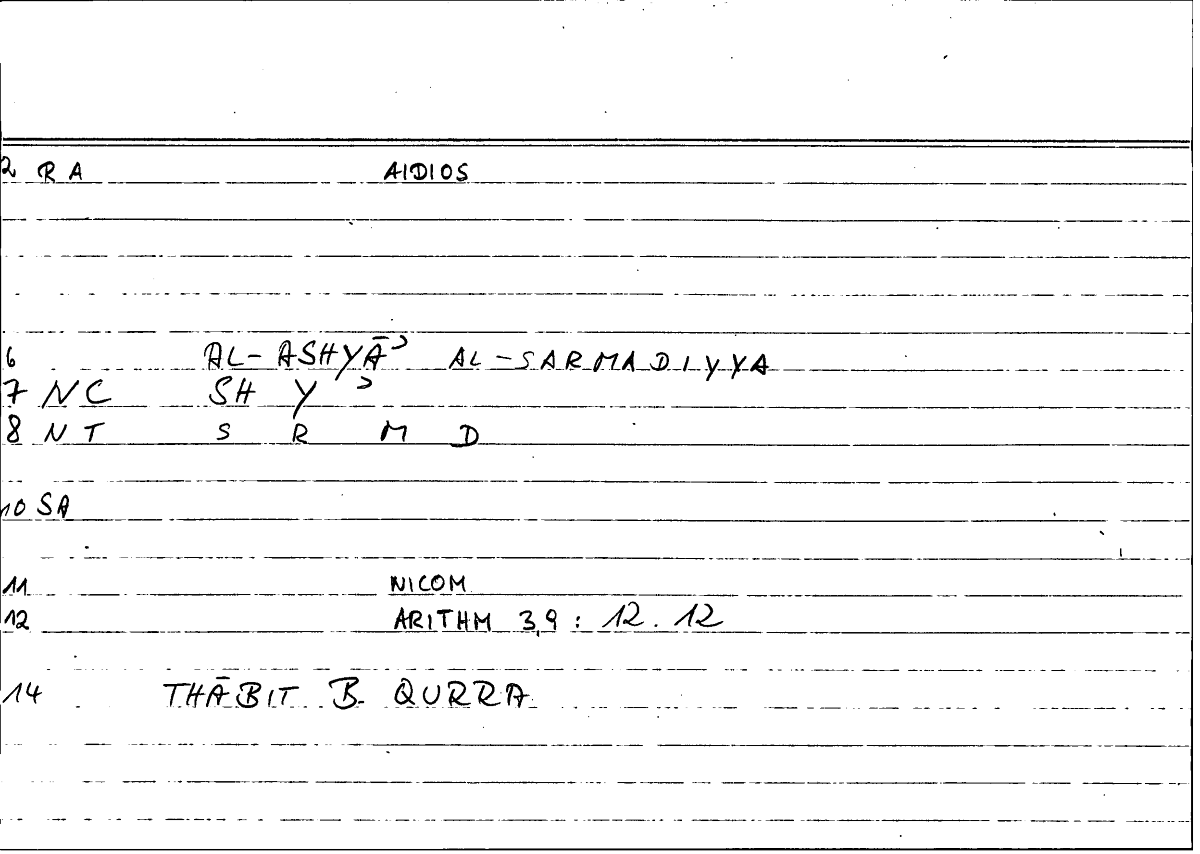 2 RA AIDIOS
6 AL-ASHYĀʾ AL-SARMADIYYA
7 NC SH Y ʾ
8 NT S R M D
10 SA
11 NICOM
12 ARITHM 3,9 : 12. 12
14 THĀBIT B. QURRA